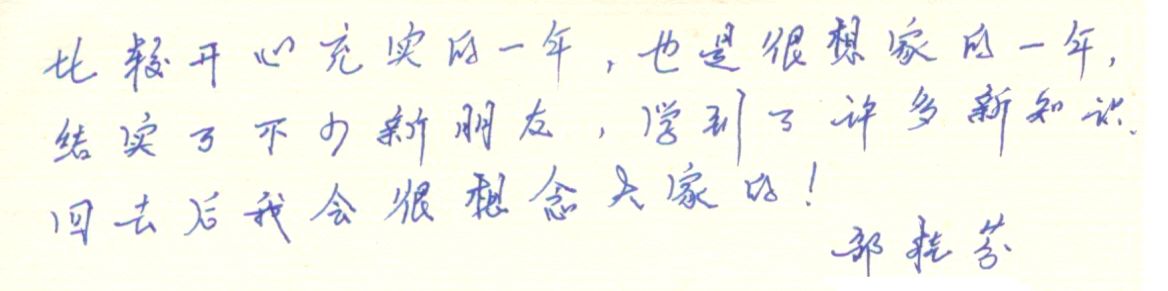 比较开心充实的一年，也是很想家的一年，
结实了不少新朋友，学到了许多新知识.
回去后我会很想念大家的！
郭桂芬